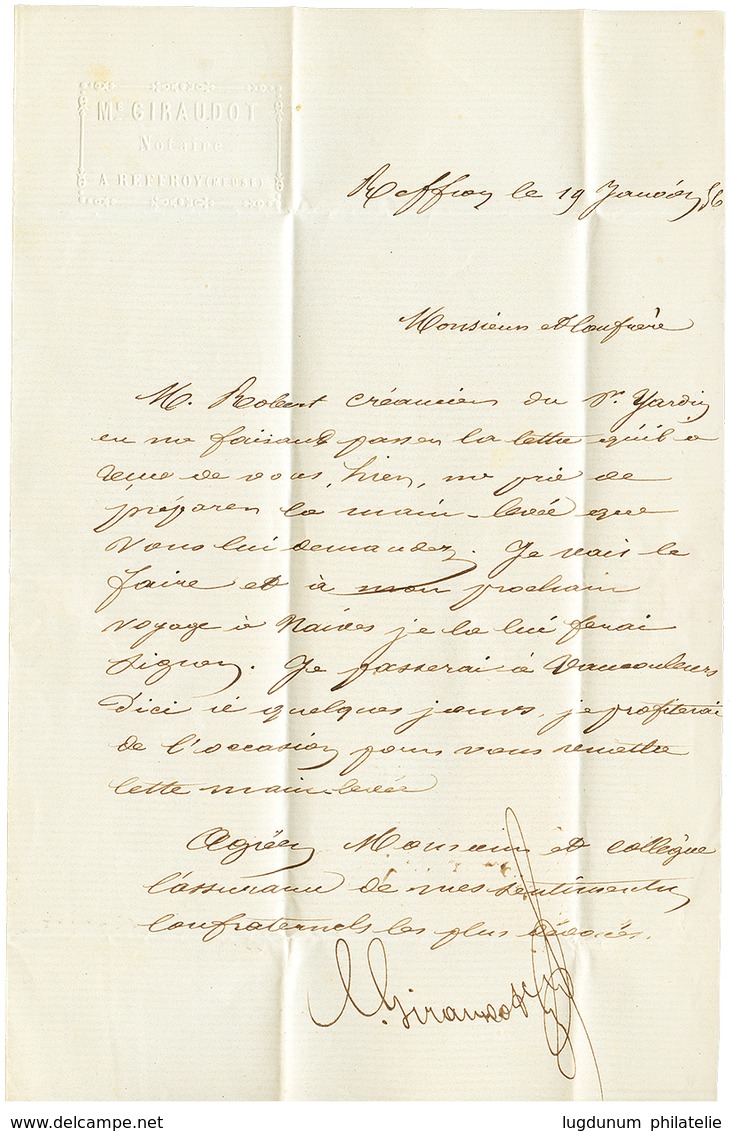 Me GIRAUDOT
Notaire
A REFFROY (MEUSE)
Reffroy le 19 Janvier 56
Monsieur et Confrère
M. Robert créancier du Sr. Yardin
en me faisant passer la lettre qu'il a
reçue de vous, hier, me prie de
préparer la main-levée que
vous lui demandez. Je vais la
faire et à mon prochain
voyage à Naives je la lui ferai
signer. Je passerai à Vaucouleurs
d'ici à quelques jours, je profiterai
de l'occasion pour vous remettre
cette main-levée
Agréez Monsieur et collègue
l'assurance de mes sentiments
confraternels les plus dévoués.
Giraudot
delcampe.net
lugdunum philatelie